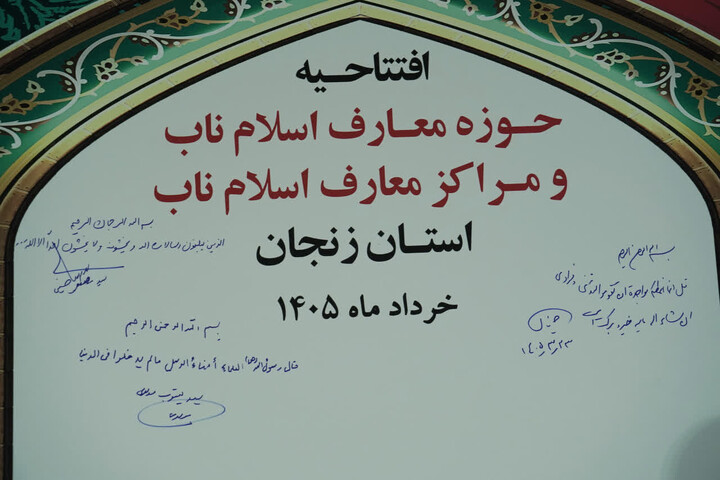 افتتاحیه
حوزه معارف اسلام ناب
و مراکز معارف اسلام ناب
استان زنجان
خرداد ماه ۱۴۰۵
بسم الله الرحمن الرحیم
الذین یبلغون رسالات الله و یخشونه و لا یخشون احداً الا الله
بسم الله الرحمن الرحیم
قل انما اعظکم بواحدة ان تقوموا لله مثنی و فرادی
ان شاء الله خیر و برکت
۱۴۰۵/۳/۲۳
بسم الله الرحمن الرحیم
قال رسول الله العلماء أمناء الرسل مالم یدخلوا فی الدنیا
سید یعقوب موسوی